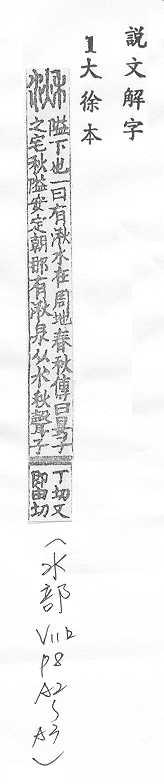 説文解字
1大徐本
湫
隘下也一曰有湫水在周地春秋傳曰晏子
之宅秋隘安定朝𨙻有湫泉从水秋聲子
了切又
即由切
(水部 V11上 P8 A2〜A3)